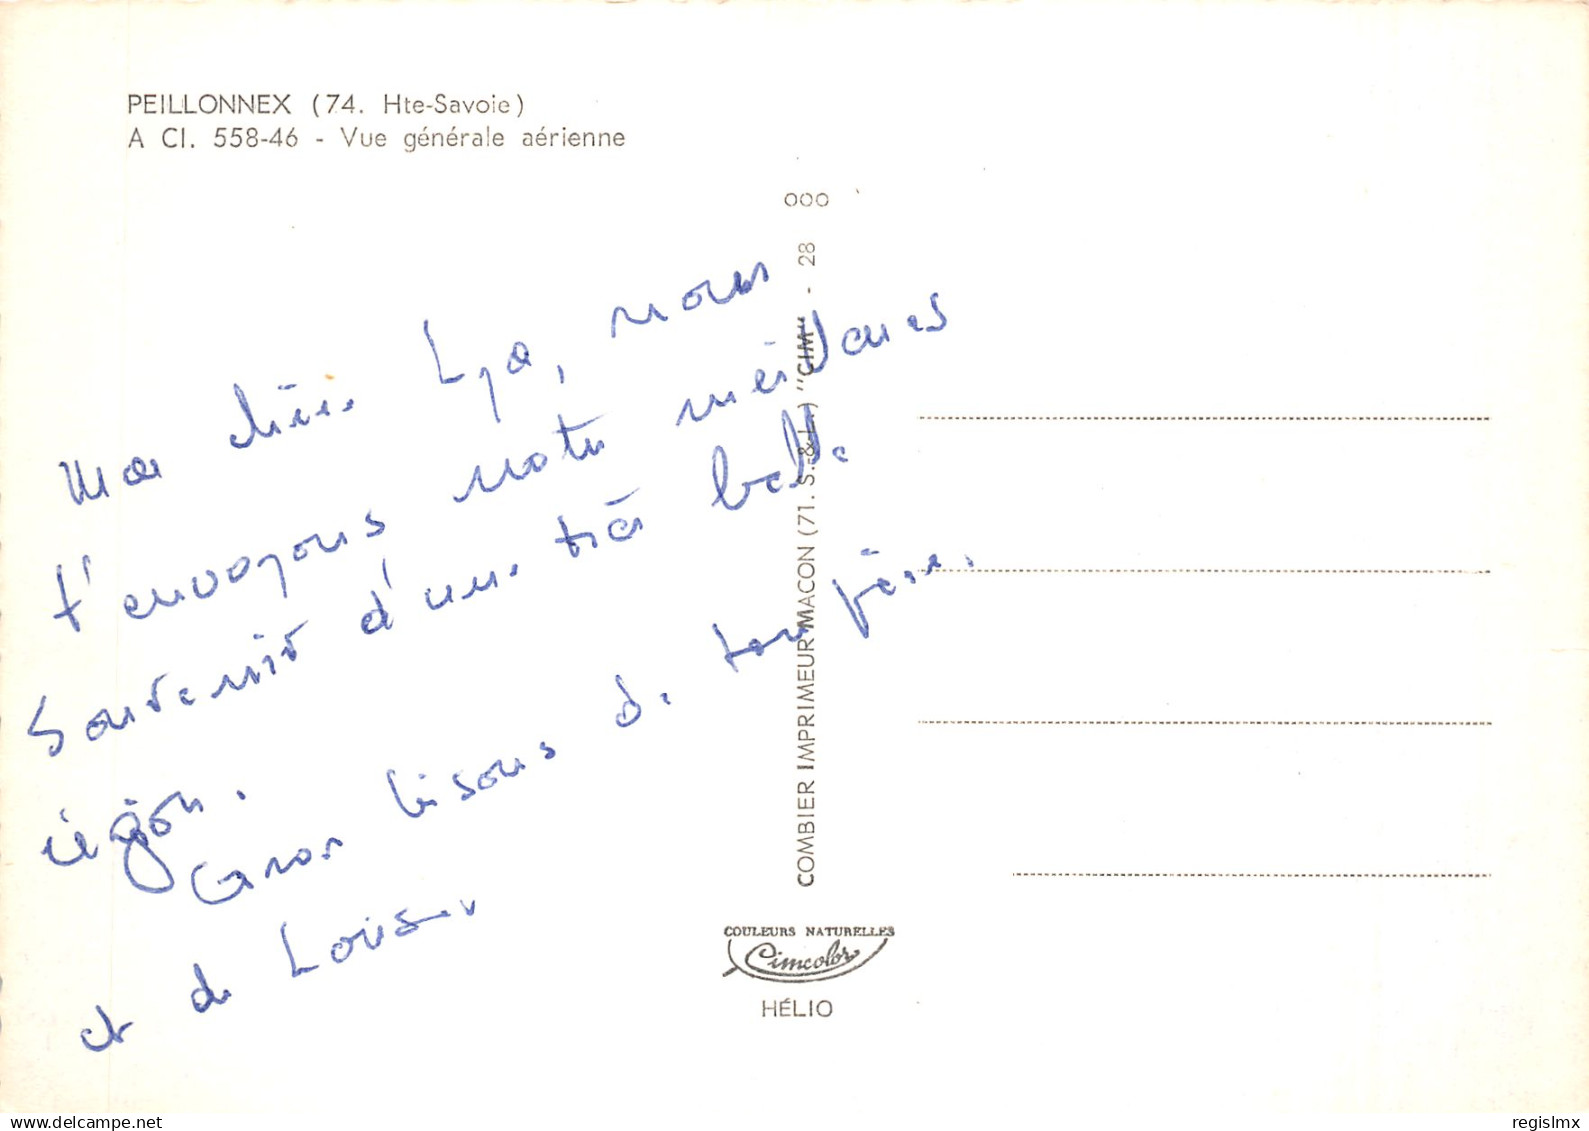 PEILLONNEX (74. Hte-Savoie)
A CI. 558-46 - Vue générale aérienne
Ma chère Lya, nous
t'envoyons notre meilleurs
souvenir d'une très belle
région.
Gros bisous de ton père.
et de Louise
OOO
COMBIER IMPRIMEUR MACON (71. S.-&-L.) "CIM" - 28
COULEURS NATURELLES
Cimcolor
HÉLIO
delcampe.net
regislmx